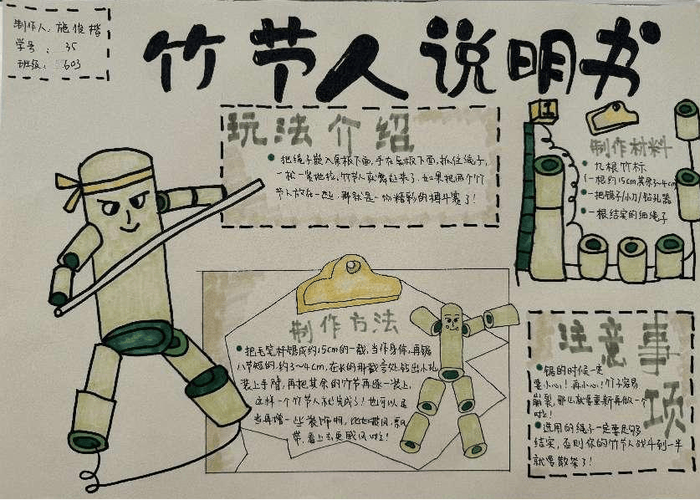 制作人：施俊楷
学号：35
班级：603
竹节人说明书
玩法介绍
把绳子嵌入桌板下面,手在桌板下面,抓住绳子,
一松一紧地拉,竹节人就舞起来了.如果把两个竹
节人放在一起,那就是一场精彩的搏斗赛了!
制作材料
九根竹标
(一根约15cm其余3~4cm)
一把锯子/小刀/钻孔器
一根结实的细绳子
制作方法
把毛笔杆锯成约15cm的一截,当作身体,再锯
八节短的,约3~4cm,在长的那截旁处钻出小孔
装上手臂,再把其余的竹节再逐一装上,
这样一个竹节人就完成了!也可以
当再增一些装饰啊,比如披风,飘
带,看上去更威风啦!
注意事项
锯的时候一定
要小心!再小心!竹子容易
崩裂,那么就要重新再做一个
啦!
选用的绳子一定要足够
结实,否则你的竹节人战斗到一半
就要散架了!